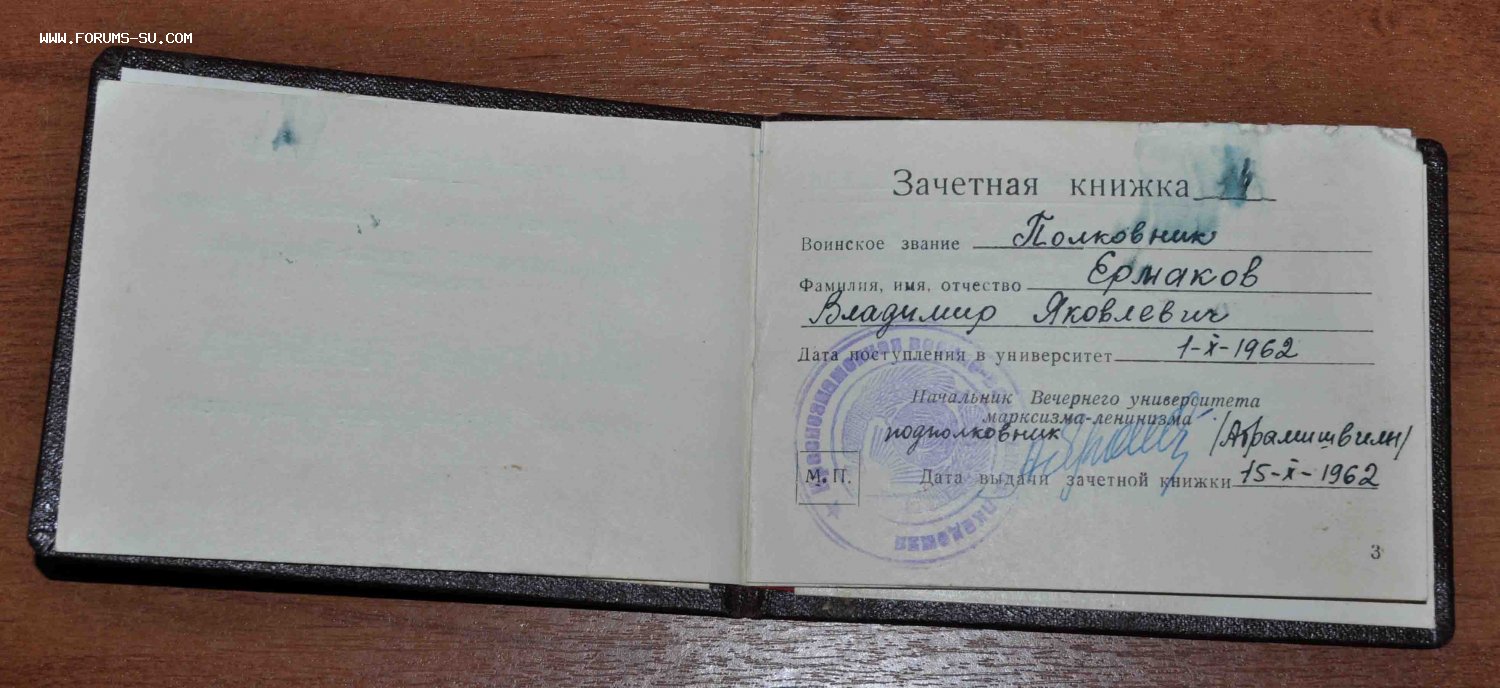 WWW.FORUMS-SU.COM
Зачетная книжка
Воинское звание Полковник
Фамилия, имя, отчество Ермаков
Владимир Яковлевич
Дата поступления в университет 1-X-1962
Начальник Вечернего университета
марксизма-ленинизма
подполковник /Абрамишвили/
М. П.
Дата выдачи зачетной книжки 15-X-1962
3